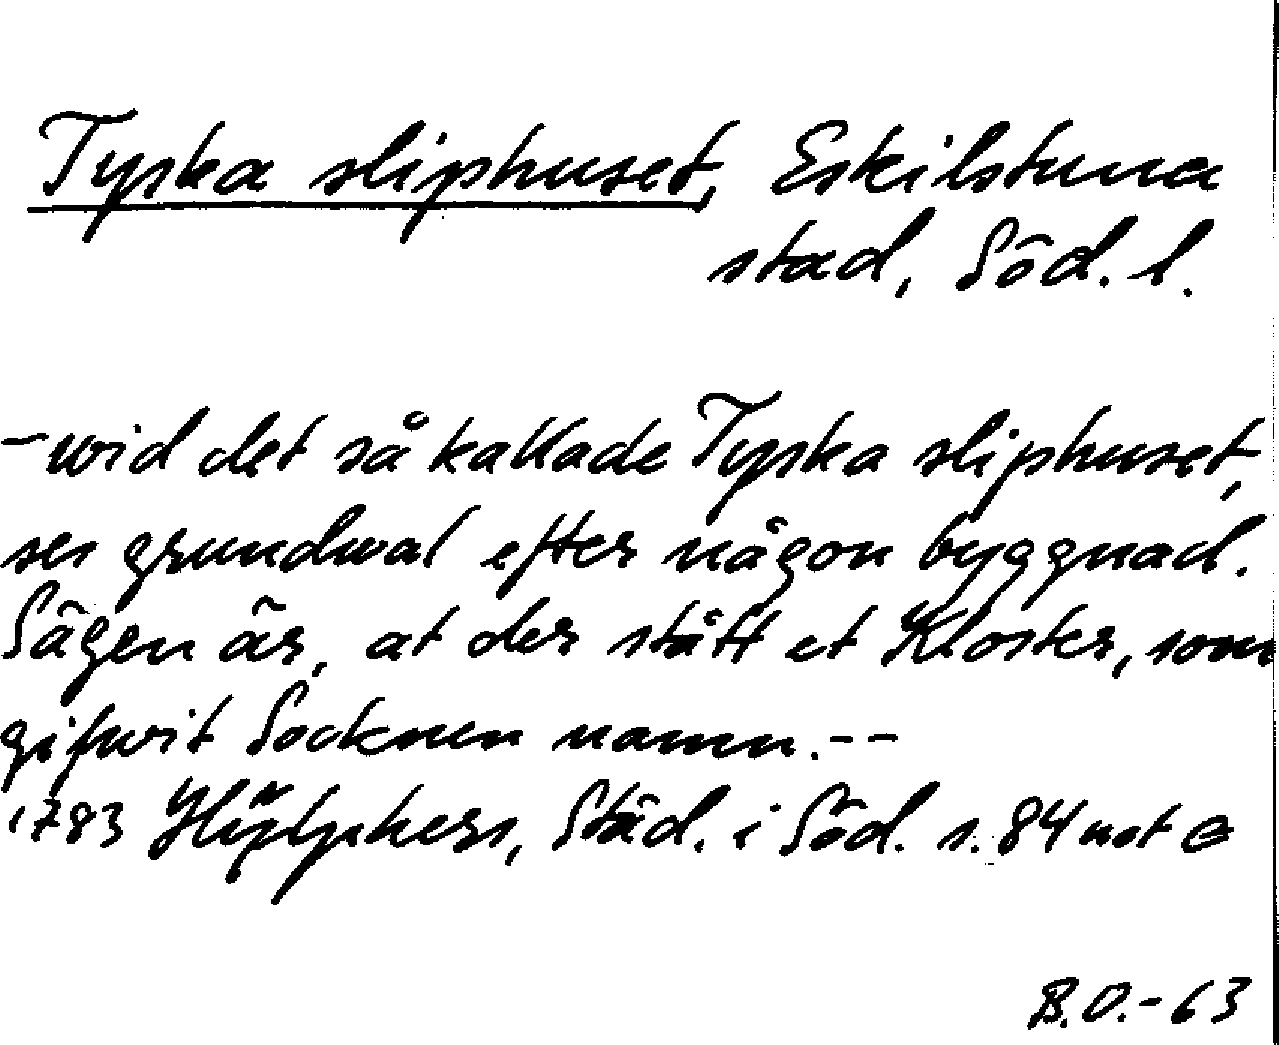 Tyska sliphuset, Eskilstuna
stad, Söd. l.
- wid det så kallade Tyska sliphuset,
ses grundwal efter någon byggnad.
Sägen är, at der stått et Kloster, som
gifwit Socknen namn. - -
1783 Hülphers, Städ. i Söd. s. 84 not e
B.O. - 63